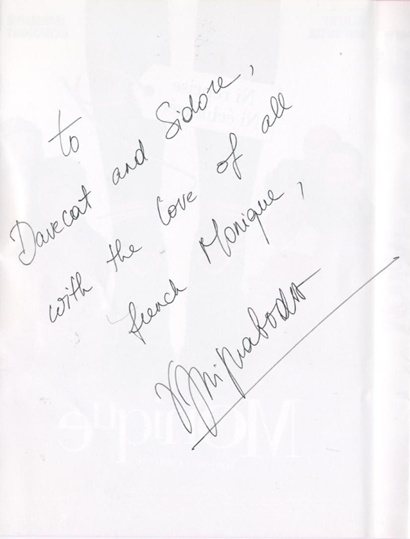 to
Davecat and Sidore,
with the love of all
french Monique,